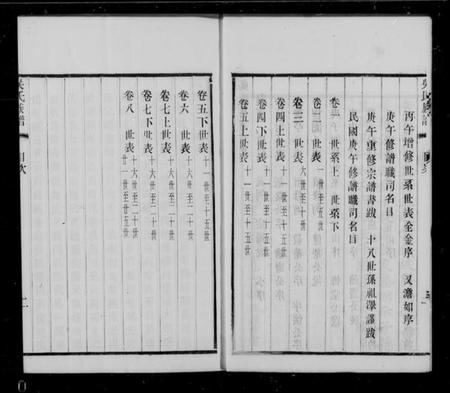 吳氏族譜
目次
丙午增修世系世表全金序 又澹如序
庚午修譜職司名目
庚午重修宗譜書跋 十八世孫祖澤謹跋
民國庚午修譜職司名目
卷一 世系上 世系下
卷二 世表一世至五世
卷三 世表六世至十世
卷四上世表十一世至十五世
卷四下世表十一世至十五世
卷五上世表十一世至十五世
卷五下世表十一世至十五世
卷六 世表十六世至二十世
卷七上世表十六世至二十世
卷七下世表十六世至二十世
卷八 世表廿一世至廿五世
吳氏族譜
目次